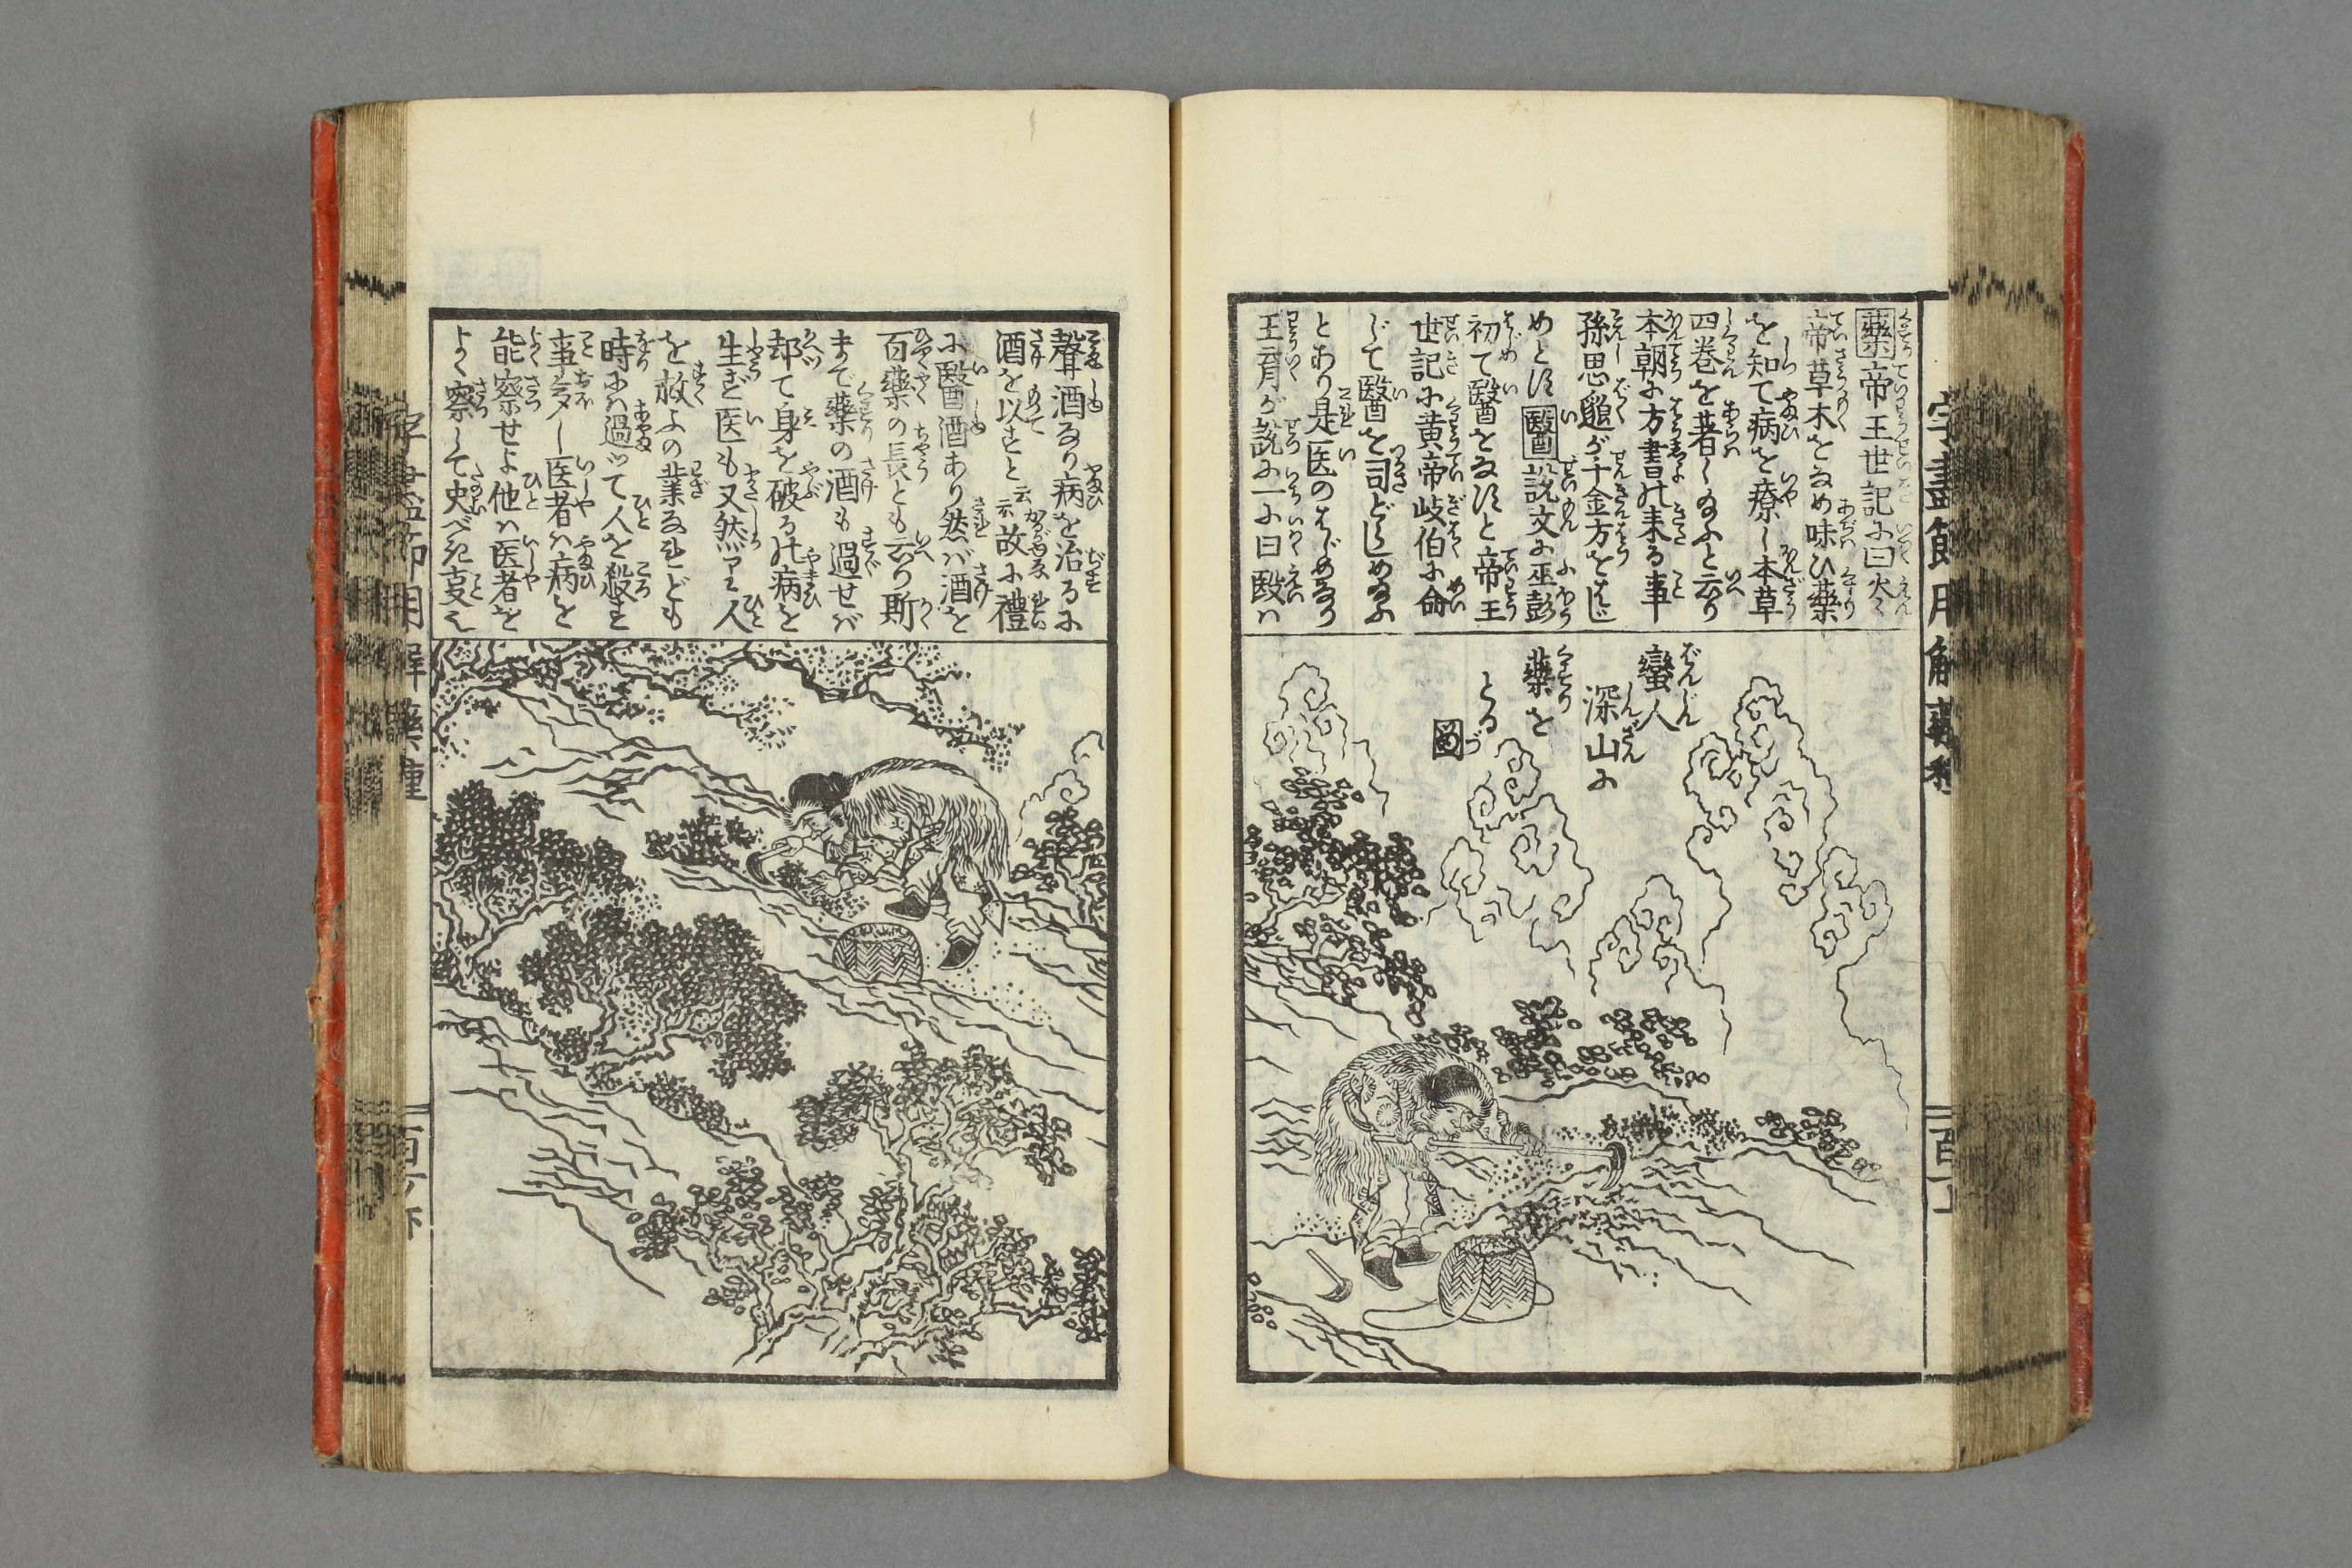 藥帝王世記に曰炎
帝草木をなめ味ひ藥
を知て病を療し本草
四巻を著し給ふと云り
本朝に方書の来る事
孫思邈が千金方をはじ
めとす醫説文に巫彭
初て醫をなすと帝王
世記に黄帝岐伯に命
じて醫を司どらしめ給ふ
とあり是医のはじめなり
王育が説に一に曰殹は
蠻人
深山に
藥を
とる
図
聲酒なり病を治るに
酒を以すと云云故に禮
に醫酒あり然ば酒を
百藥の長とも云り斯
まで藥の酒も過せば
却て身を破るの病を
生ず医も又然り人
を救ふの業なれども
時には過つて人を殺す
事多し医者は病を
能察せよ他は医者を
よく察して史べき支也
字盡節用解